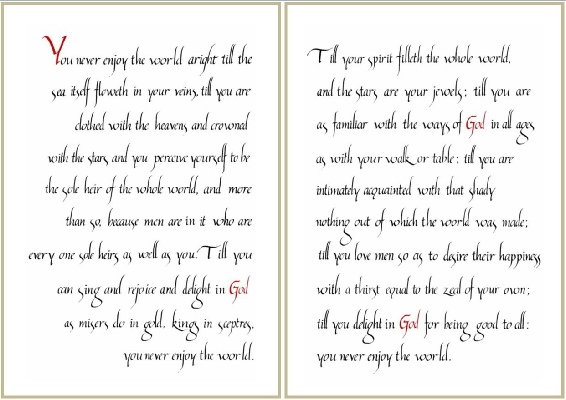 You never enjoy the world aright till the
sea itself floweth in your veins, till you are
clothed with the heavens and crowned
with the stars, and you perceive yourself to be
the sole heir of the whole world, and more
than so, because men are in it who are
every one sole heirs as well as you. Till you
can sing and rejoice and delight in God
as misers do in gold, kings in sceptres,
you never enjoy the world.
Till your spirit filleth the whole world,
and the stars are your jewels; till you are
as familiar with the ways of God in all ages
as with your walk or table; till you are
intimately acquainted with that shady
nothing out of which the world was made;
till you love men so as to desire their happiness
with a thirst equal to the zeal of your own;
till you delight in God for being good to all:
you never enjoy the world.